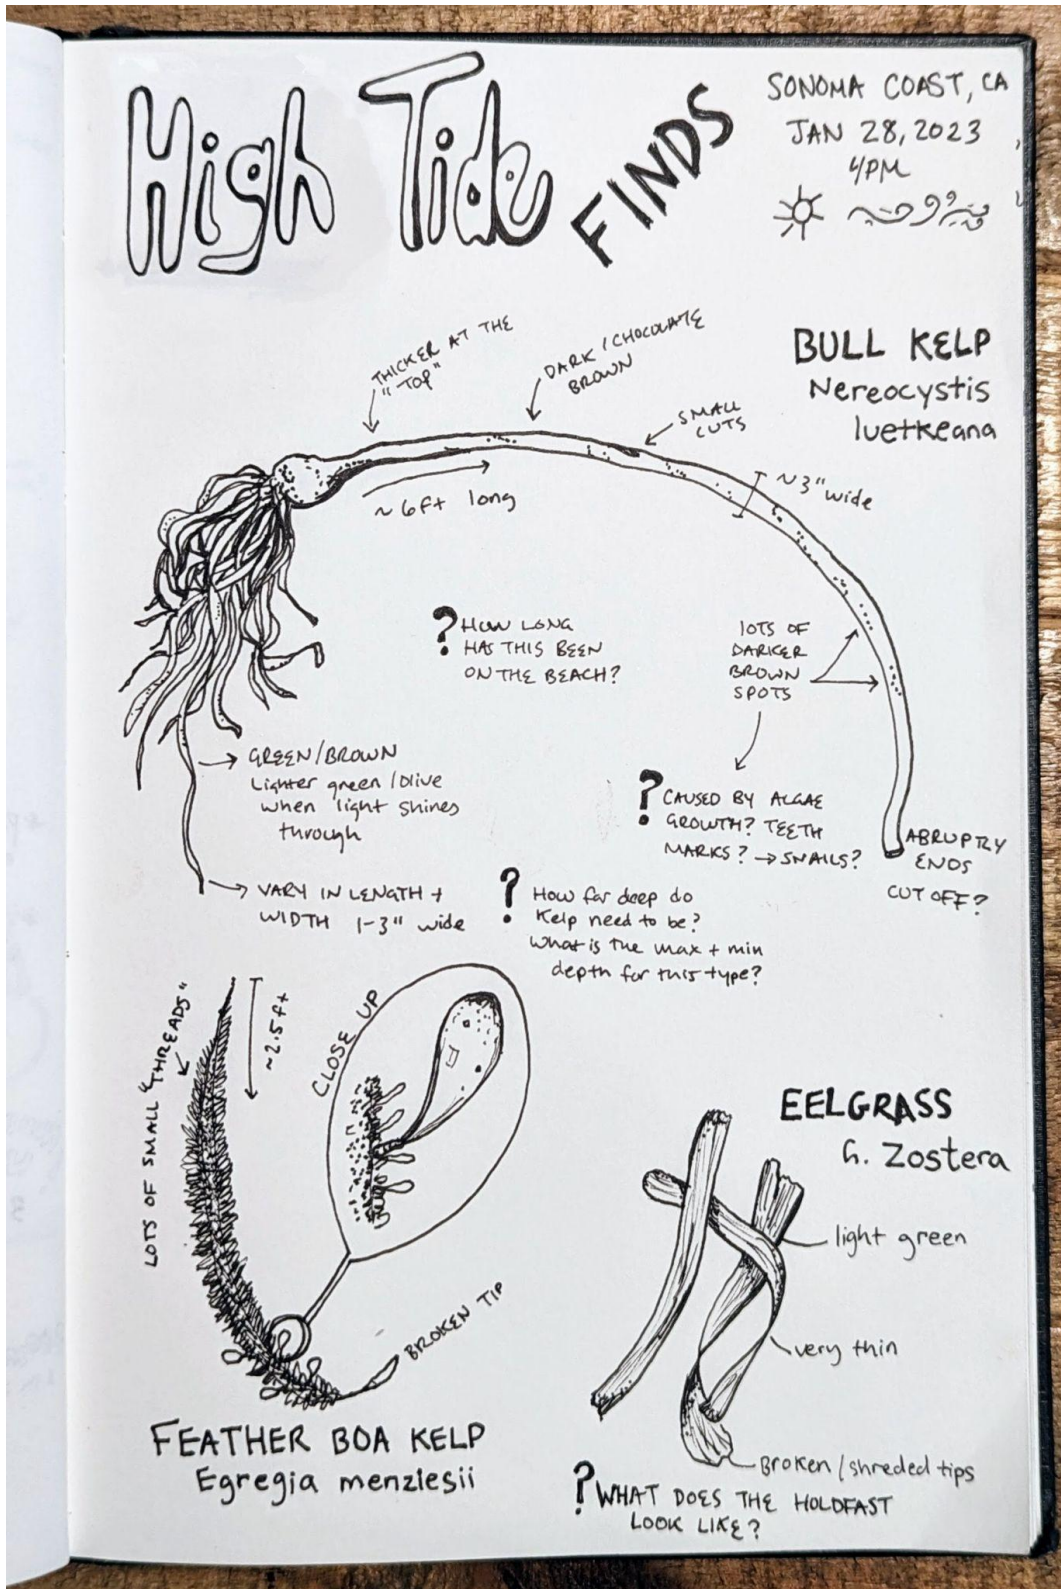 High Tide FINDS
SONOMA COAST, CA
JAN 28, 2023
4PM
BULL KELP
Nereocystis
luetkeana
THICKER AT THE
"TOP"
DARK / CHOCOLATE
BROWN
SMALL
CUTS
~ 6ft long
~3" wide
? HOW LONG
HAS THIS BEEN
ON THE BEACH?
LOTS OF
DARKER
BROWN
SPOTS
GREEN/BROWN
Lighter green/olive
when light shines
through
? CAUSED BY ALGAE
GROWTH? TEETH
MARKS? → SNAILS?
ABRUPTLY
ENDS
CUT OFF?
VARY IN LENGTH +
WIDTH 1-3" wide
? How far deep do
Kelp need to be?
What is the max + min
depth for this type?
LOTS OF SMALL "THREADS"
~2.5ft
CLOSE UP
BROKEN TIP
FEATHER BOA KELP
Egregia menziesii
EELGRASS
G. Zostera
light green
very thin
Broken/shreded tips
? WHAT DOES THE HOLDFAST
LOOK LIKE?